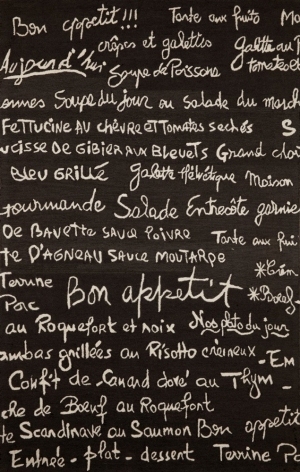 Bon appetit!!! Tarte aux fruits
crêpes et galettes Galette au P
Aujourd'hui Soupe de Poissons tomates et
ennes Soupe du jour ou salade du march
FETTUCINE AU CHÈVRE ET TOMATES SECHÉS S
UCISSE DE GIBIER AUX BLEUETS Grand choi
BLEU GRILLÉ Galette Helvétique Maison
gourmande Salade Entrecôte garnie
DE BAVETTE SAUCE POIVRE Tarte aux frui
te D'AGNEAU SAUCE MOUTARDE
Terrine Bon appetit *Crèm
Porc *Boeuf
au Roquefort et noix Nos plats du jour
ambas grillées au Risotto crémeux - Em
Confit de Canard doré au Thym -
che de Bœuf au Roquefort
te Scandinave au Saumon Bon appetit
Entrée - plat - dessert Terrine Pa